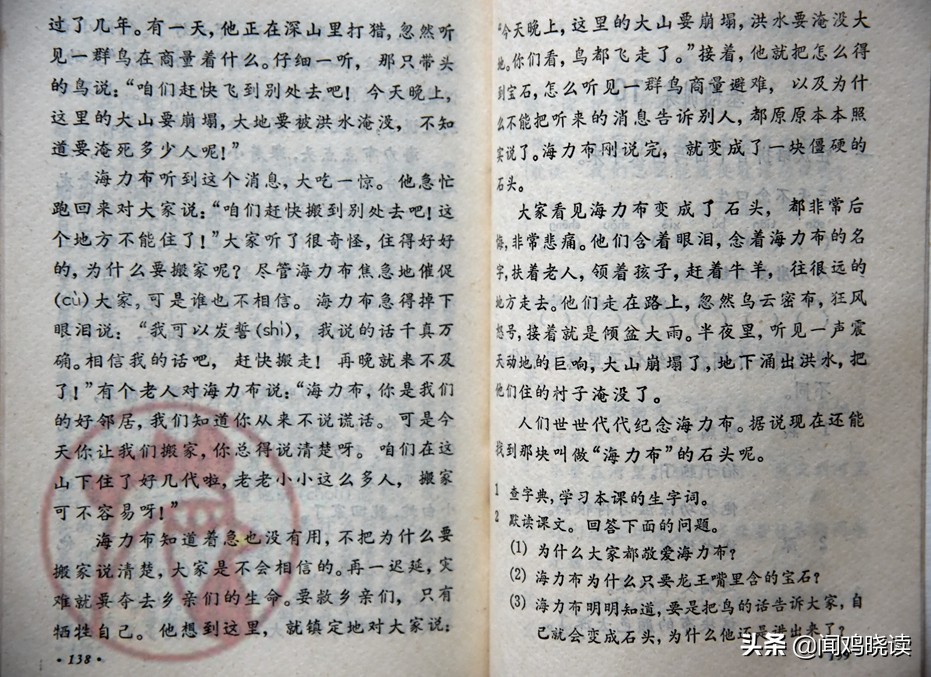 过了几年。有一天,他正在深山里打猎,忽然听
见一群鸟在商量着什么。仔细一听,那只带头
的鸟说:“咱们赶快飞到别处去吧!今天晚上,
这里的大山要崩塌,大地要被洪水淹没,不知
道要淹死多少人呢!”
海力布听到这个消息,大吃一惊。他急忙
跑回来对大家说:“咱们赶快搬到别处去吧!这
个地方不能住了!”大家听了很奇怪,住得好好
的,为什么要搬家呢?尽管海力布焦急地催促
(cù)大家,可是谁也不相信。海力布急得掉下
眼泪说:“我可以发誓(shì),我说的话千真万
确。相信我的话吧,赶快搬走!再晚就来不及
了!”有个老人对海力布说:“海力布,你是我们
的好邻居,我们知道你从来不说谎话。可是今
天你让我们搬家,你总得说清楚呀。咱们在这
山下住了好几代啦,老老小小这么多人,搬家
可不容易呀!”
海力布知道着急也没有用,不把为什么要
搬家说清楚,大家是不会相信的。再一迟延,灾
难就要夺去乡亲们的生命。要救乡亲们,只有
牺牲自己。他想到这里,就镇定地对大家说:
·138·
“今天晚上,这里的大山要崩塌,洪水要淹没大
地。你们看,鸟都飞走了。”接着,他就把怎么得
到宝石,怎么听见一群鸟商量避难,以及为什
么不能把听来的消息告诉别人,都原原本本照
实说了。海力布刚说完,就变成了一块僵硬的
石头。
大家看见海力布变成了石头,都非常后
悔,非常悲痛。他们含着眼泪,念着海力布的名
字,扶着老人,领着孩子,赶着牛羊,往很远的
地方走去。他们走在路上,忽然乌云密布,狂风
怒号,接着就是倾盆大雨。半夜里,听见一声震
天动地的巨响,大山崩塌了,地下涌出洪水,把
他们住的村子淹没了。
人们世世代代纪念海力布。据说现在还能
找到那块叫做“海力布”的石头呢。
1 查字典,学习本课的生字词。
2 默读课文。回答下面的问题。
(1) 为什么大家都敬爱海力布?
(2) 海力布为什么只要龙王嘴里含的宝石?
(3) 海力布明明知道,要是把鸟的话告诉大家,自
己就会变成石头,为什么他还是讲出来了?
头条 @闻鸡晓读